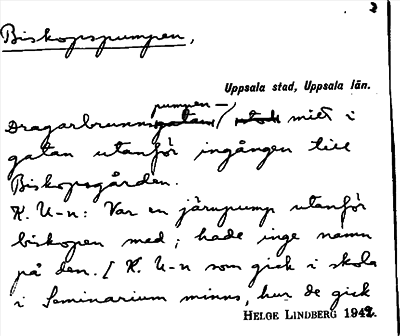 2
Biskopspumpen,
Uppsala stad, Uppsala län.
pumpen -
Dragarbrunnsgatan / stod mitt i
gatan utanför ingången till
Biskopsgården.
K. U-n: Var en järnpump utanför
biskopen med; hade inge namn
på den. [ K. U-n som gick i skola
i Seminarium minns, hur de gick
HELGE LINDBERG 1942.